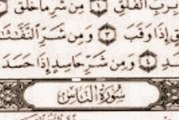 بِرَبِّ الْفَلَقِ ١ مِن شَرِّ مَا خَلَقَ
إِذَا وَقَبَ ٣ وَمِن شَرِّ النَّفَّاثَاتِ
٤ وَمِن شَرِّ حَاسِدٍ إِذَا حَسَدَ
سُورَةُ النَّاسِ